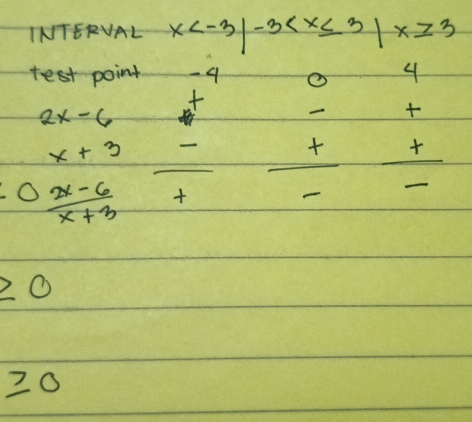 INTERVAL x<-3 | -3<x≤3 | x≥3
test point -4 0 4
+
2x-6 - +
x+3 - + +
<0 2x-6 + - -
x+3
≥0
≥0